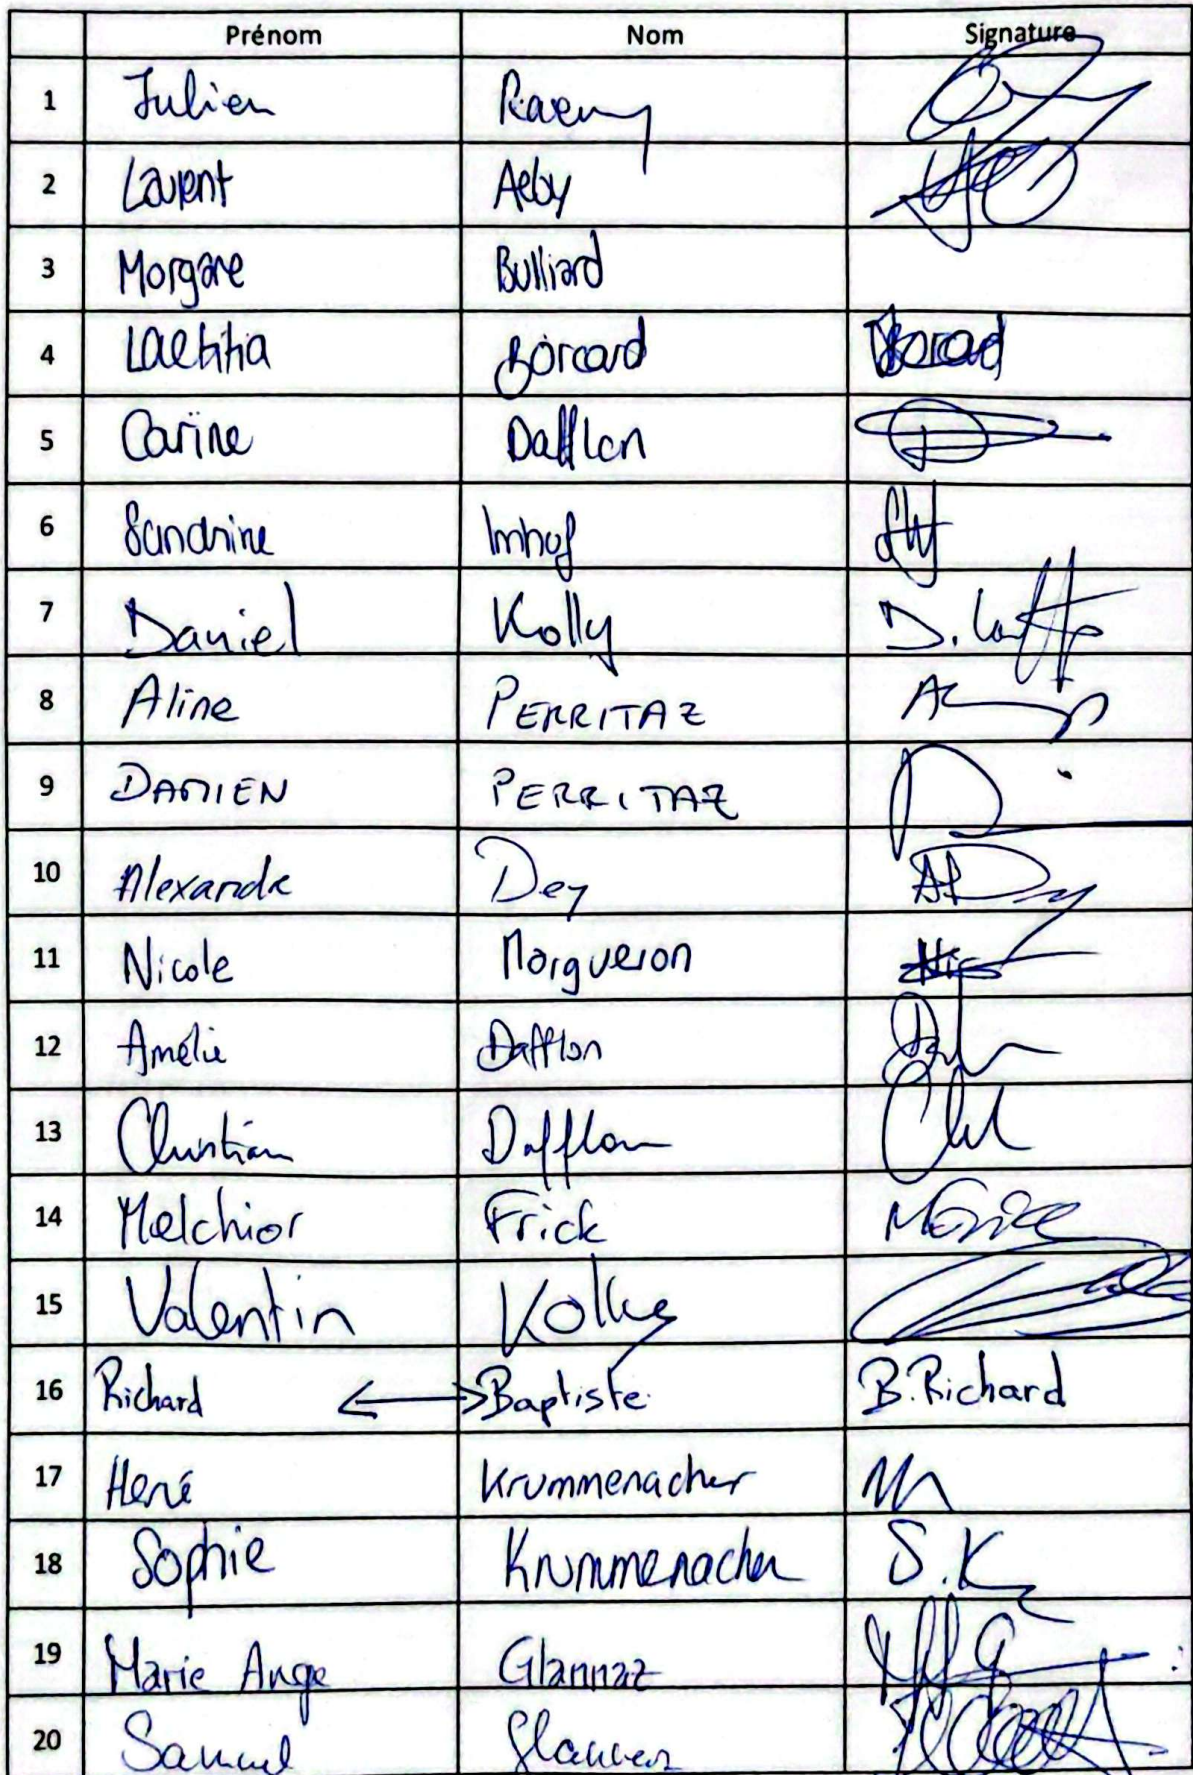 Prénom Nom Signature
1 Julien Raemy
2 Laurent Aeby
3 Morgane Bulliard
4 Laetitia Borcard Borcard
5 Carine Dafflon
6 Sandrine Imhof
7 Daniel Kolly D.
8 Aline PERRITAZ
9 DAMIEN PERRITAZ
10 Alexandre Dey
11 Nicole Morgueron
12 Amélie Dafflon
13 Christian Dafflon
14 Melchior Frick
15 Valentin Kolly
16 Richard <-> Baptiste B. Richard
17 Krummenacher
18 Sophie Krummenacher S.K
19 Marie Ange Glannaz
20 Samuel